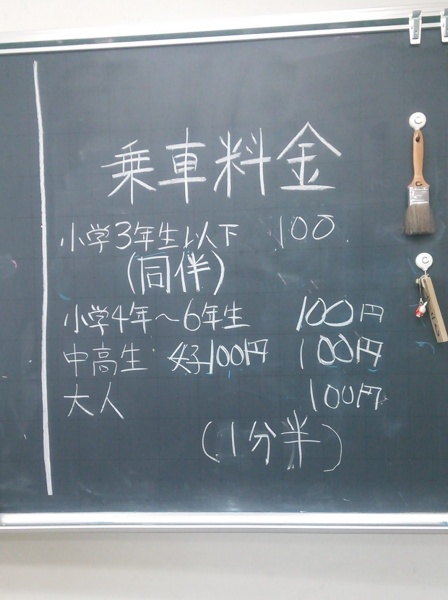 乗車料金
小学3年生以下 100
(同伴)
小学4年～6年生 100円
中高生 100円 100円
大人 100円
(1分半)